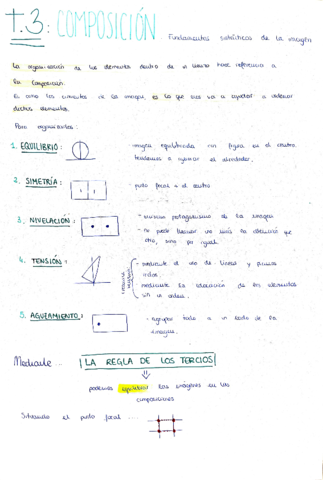 T.3: COMPOSICIÓN
Fundamentos sintácticos de la imagen
La organización de los elementos dentro de un lienzo hace referencia a
la composición.
Es como los elementos de la imagen, es lo que nos va a ayudar a ordenar
dichos elementos.
Para organizarlos:
1. EQUILIBRIO:
- imagen equilibrada con figura en el centro
tendemos a el alrededor.
2. SIMETRÍA:
- punto focal = el centro
3. NIVELACIÓN:
- mismo protagonismo de la imagen
- no puede llamar uno más la atención que
otro, sino por igual.
4. TENSIÓN:
- mediante el uso de líneas y puntos
- mediante la colocación de los elementos
sin un orden.
5. AGRUPAMIENTO:
- agrupar todo a un lado de la
imagen.
Mediante ... LA REGLA DE LOS TERCIOS
podemos equilibrar las imágenes en las
composiciones
Situando el punto focal ....